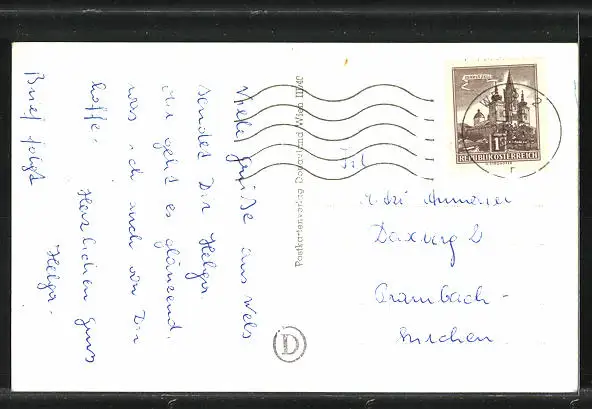 Viele Grüße aus Wels
sendet Dir Helga.
Mir geht es glänzend,
was ich auch von Dir
hoffe. Herzlichen Gruss
Helga.
Brief folgt
Postkartenverlag Donauland Wien III/40
D
MARIAZELL
1S
REPUBLIK ÖSTERREICH
Frl.
Daxberg 2
Prambach-
kirchen